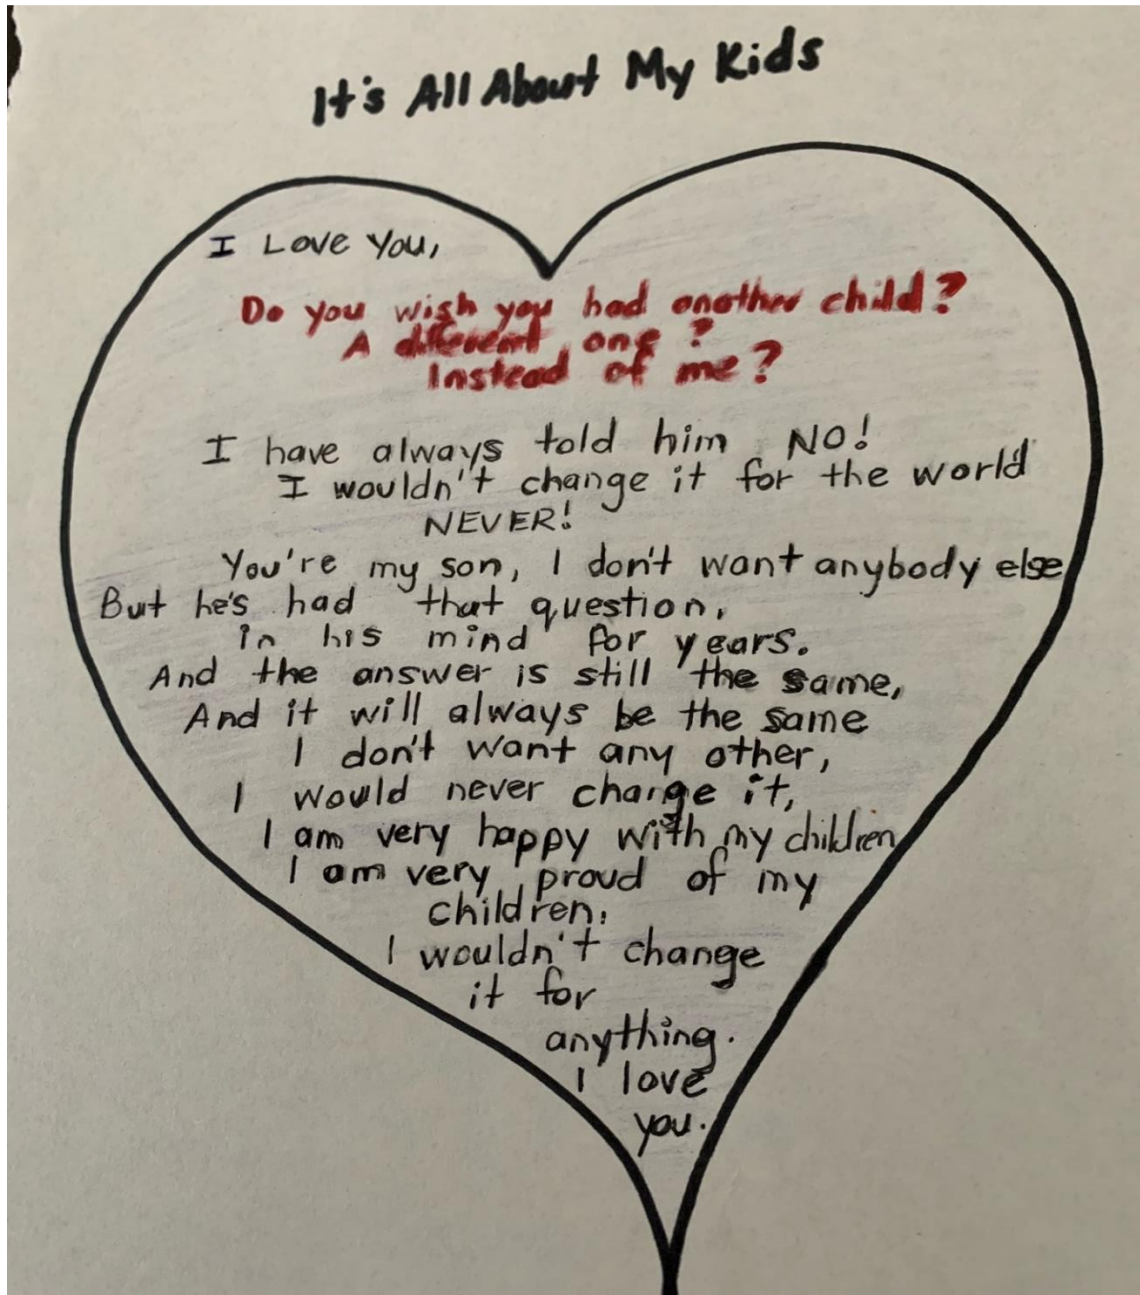 It's All About My Kids
I Love You,
Do you wish you had another child?
A different one?
Instead of me?
I have always told him NO!
I wouldn't change it for the world
NEVER!
You're my son, I don't want anybody else
But he's had that question,
in his mind for years.
And the answer is still the same,
And it will always be the same
I don't want any other,
I would never change it,
I am very happy with my children
I am very proud of my
children.
I wouldn't change
it for
anything.
I love
you.